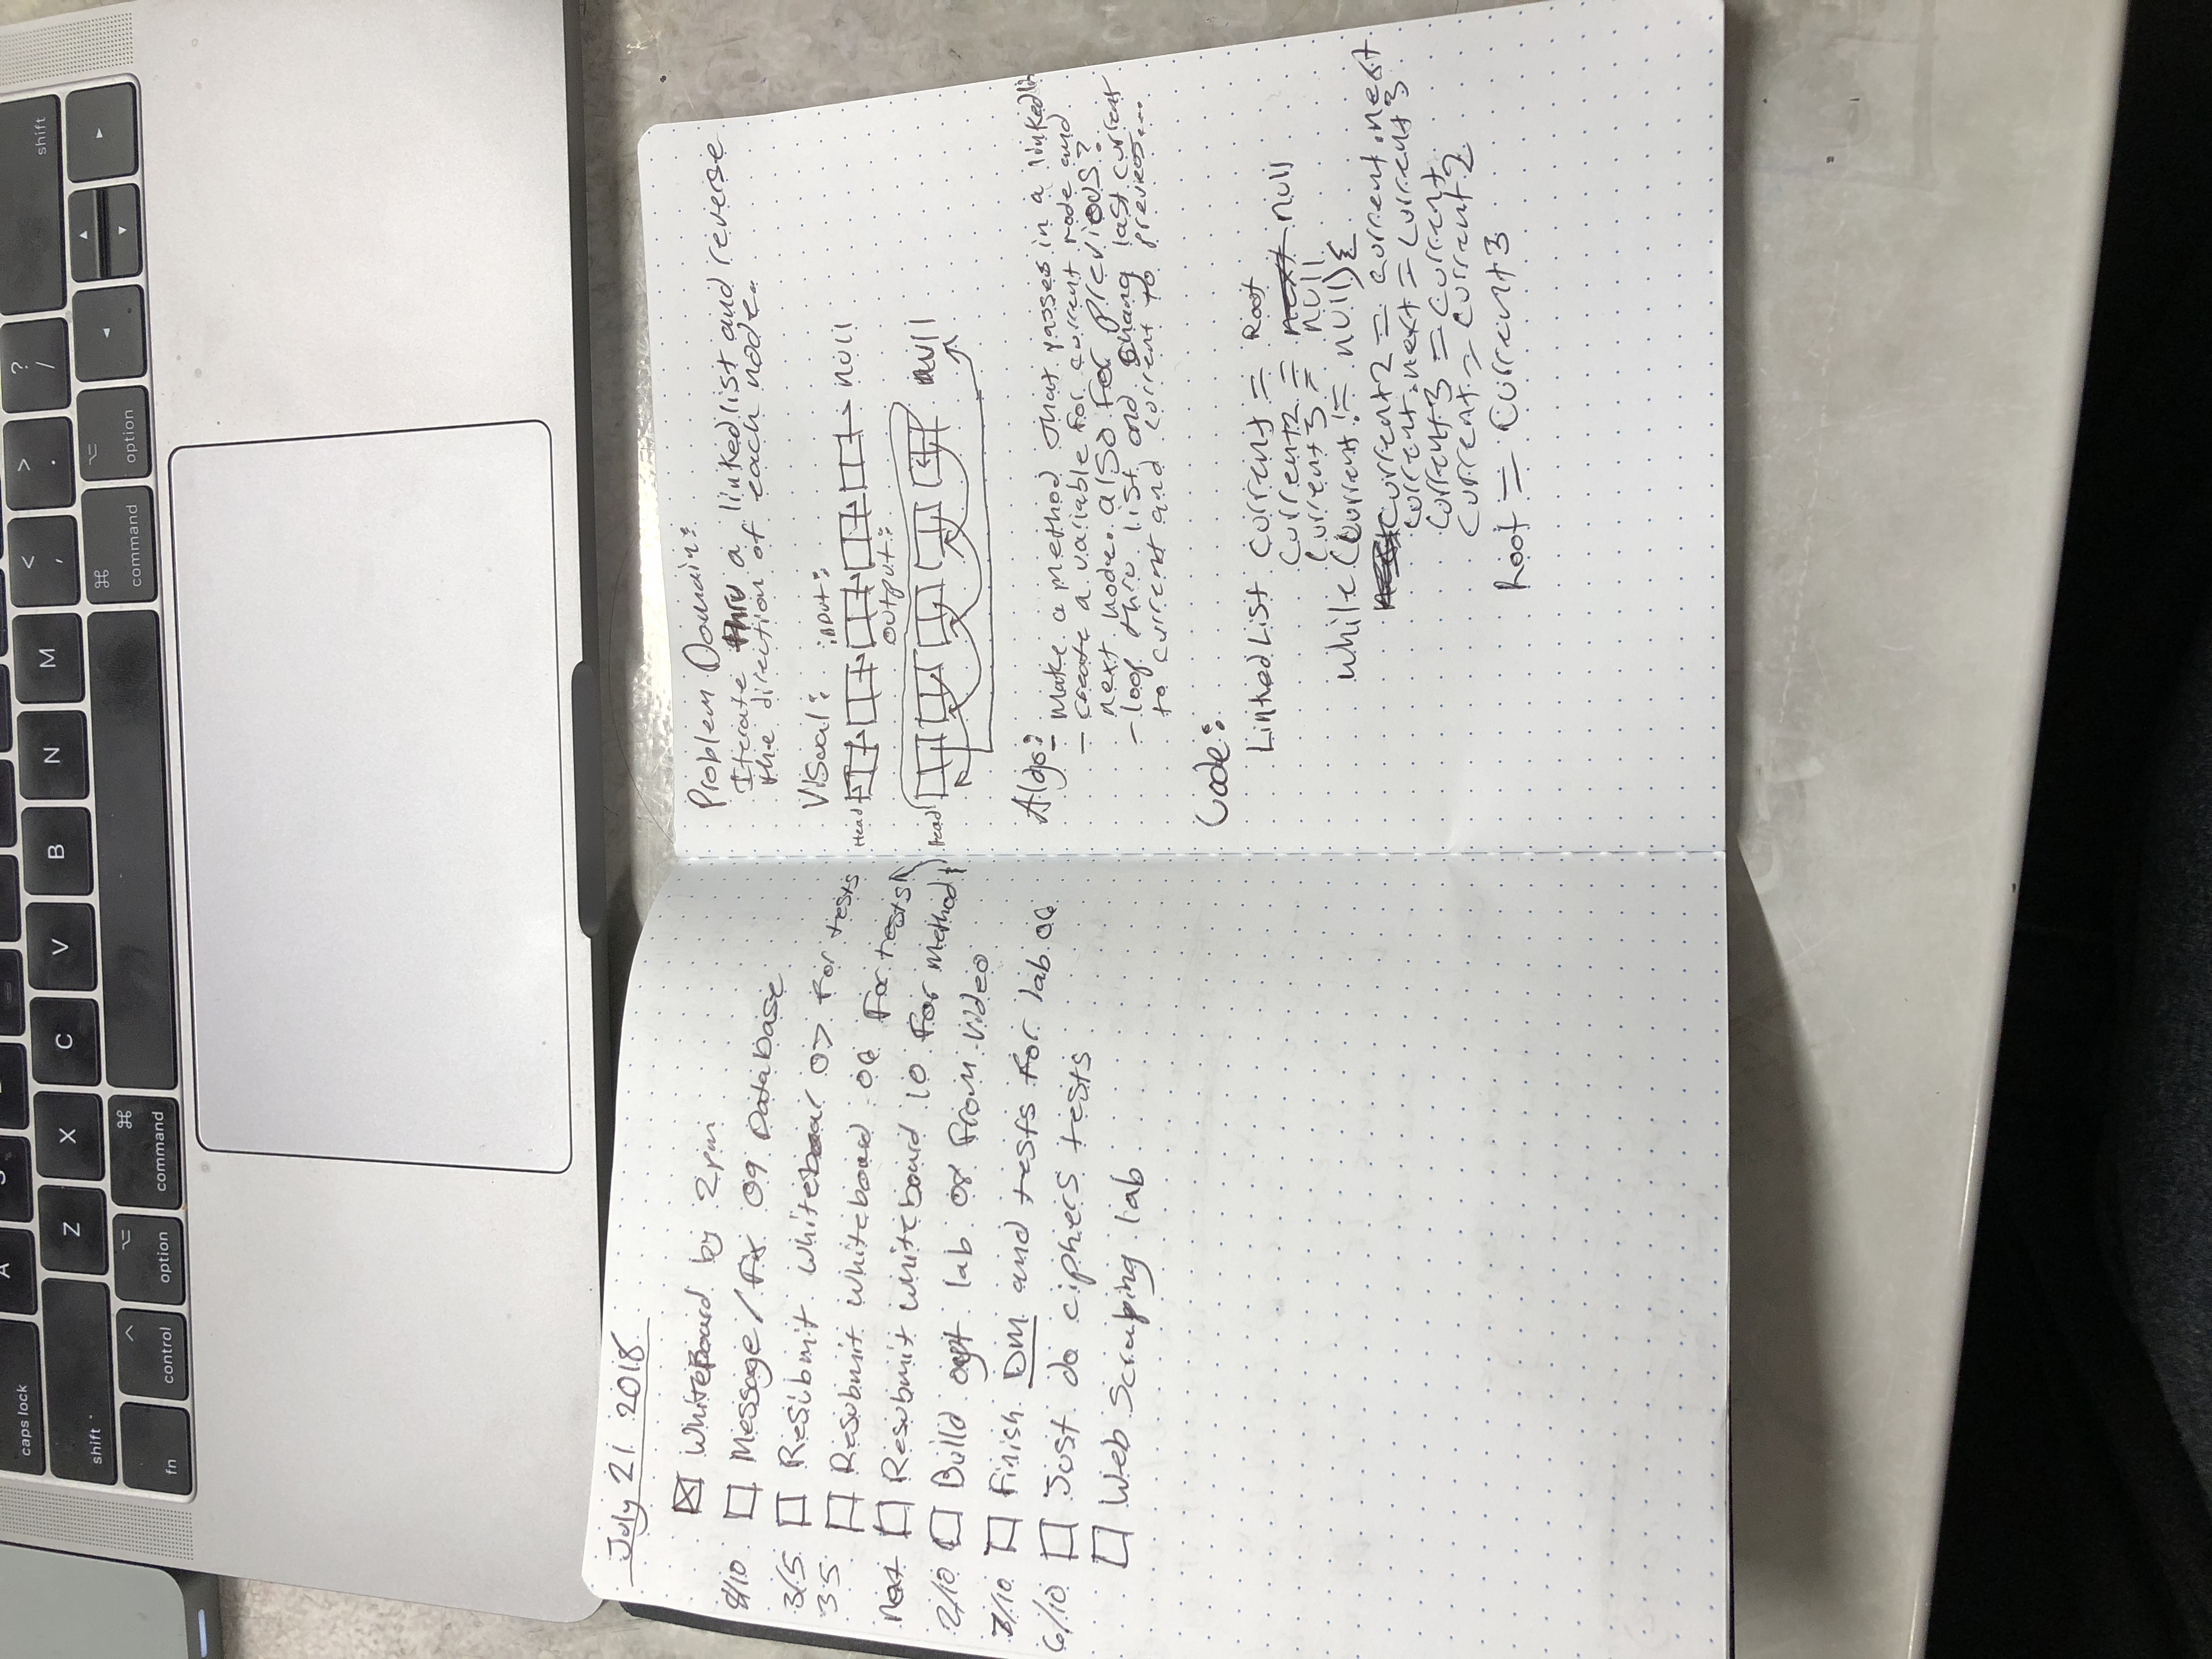 caps lock
A
S
shift
Z
X
C
V
B
N
M
<
,
>
.
?
/
shift
fn
control
option
command
command
option
July 21 2018
WhiteBoard by 2pm
8/10 Message / Fix 09 Database
3/5 Resubmit whiteboar 07 for tests
35 Resubmit whiteboard 06 for tests
next Resubmit whiteboard 10 for method
2/10 Build lab 08 from video
7/10 Finish DM and tests for lab 06
6/10 Just do ciphers tests
Web Scraping lab
Problem Domain:
Iterate thru a linkedlist and reverse
the direction of each node.
Visual: input:
Head null
output:
Head null
Algo:
- make a method that passes in a linked
- create a variable for current node and
next node. also for previous?
- loop thru list and chang last current
to current and current to previos...
Code:
LinkedList current = Root
current2 = next null
current3 = null
while (current != null){
next current2 = current.next
current.next = current3
current3 = current
current = current2
Root = current3